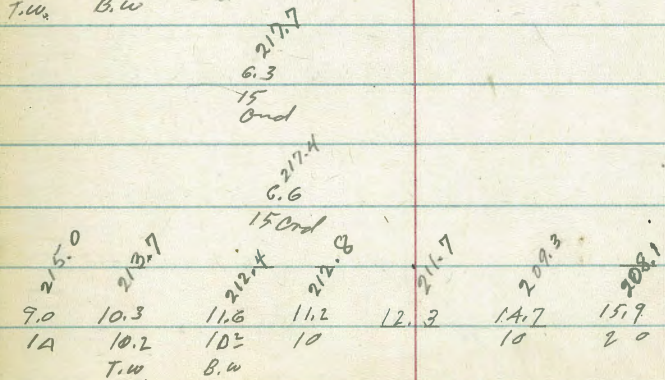 T.W. B.W
217.7
6.3
15
Ond
217.4
6.6
15 Ond
215.0 213.7 212.4 212.8 211.7 209.3 208.1
9.0 10.3 11.6 11.2 12.3 14.7 15.9
14 10.2 10² 10 10 20
T.W B.W